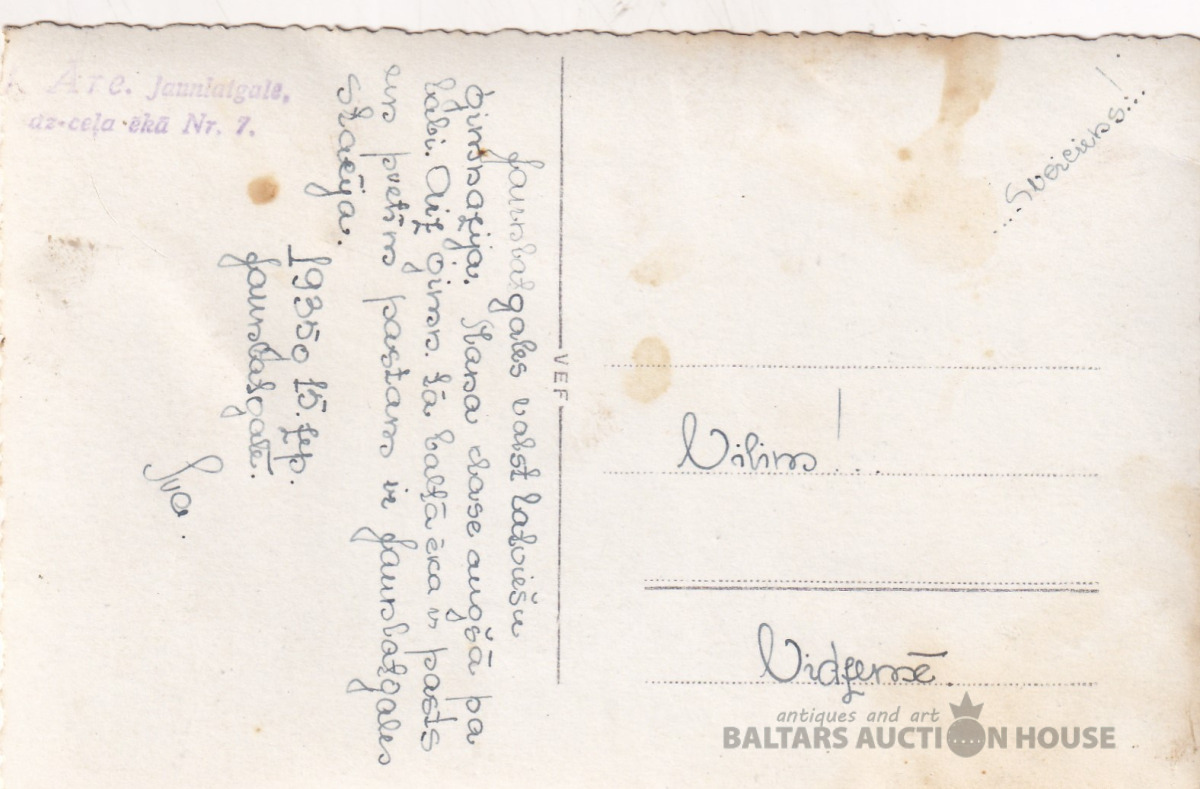 Āre. Jaunlatgale,
dz-ceļa ēkā Nr. 7.
Jaunlatgales valst latviešu
ģimnazija. Mana klase augšā pa
labi. Aiz ģimn. tā baltā ēka ir pasts
un pretim pastam ir Jaunlatgales
stacija.
1935g 15. sep.
Jaunlatgalē.
Iva.
VEF
....Sveiciens!...
Vilim!...
Vidzemē.
antiques and art
BALTARS AUCTION HOUSE